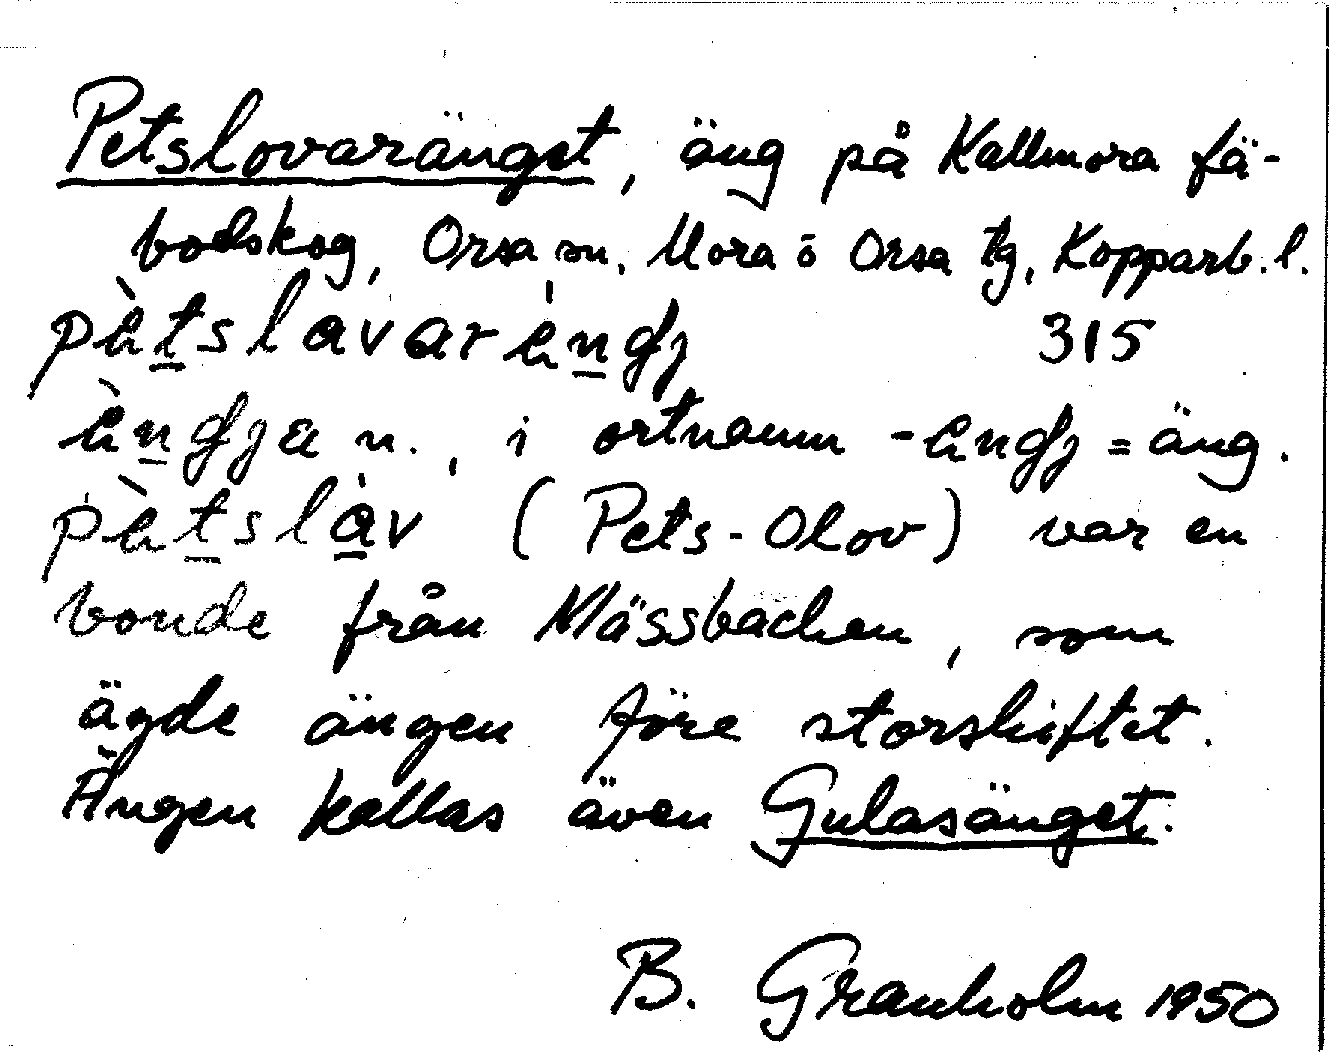 Petslovaränget, äng på Kallmora fä-
bodskog, Orsa sn, Mora o Orsa tg, Kopparb. l.
pètslavarèngj 315
èngja n., i ortnamn -engj = äng.
pètsláv (Pets-Olov) var en
bonde från Mässbacken, som
ägde ängen före storskiftet.
Ängen kallas även Gulasänget.
B. Granholm 1950